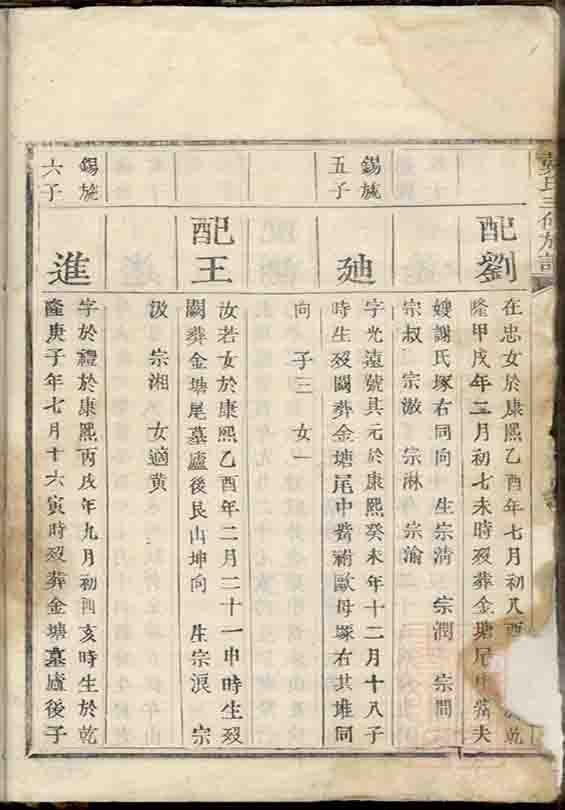 氏三修族譜
配劉
在忠女於康熙乙酉年七月初八酉乾
隆甲戌年三月初七未時歿葬金塘尾中嘴夫
嫂謝氏塚右同向 生宗清 宗潤 宗間
宗叔 宗激 宗淋 宗渝
錫施
五子
廸
字光遠號其元於康熙癸未年十二月十八子
時生歿闕葬金塘尾中嘴祔歐母塚右其堆同
向 子三 女一
配王
汝若女於康熙乙酉年二月二十一申時生歿
闕葬金塘尾墓廬後艮山坤向 生宗浪 宗
汲 宗湘 女適黄
錫施
六子
進
字於禮於康熙丙戌年九月初四亥時生於乾
隆庚子年七月十六寅時歿葬金塘墓廬後子